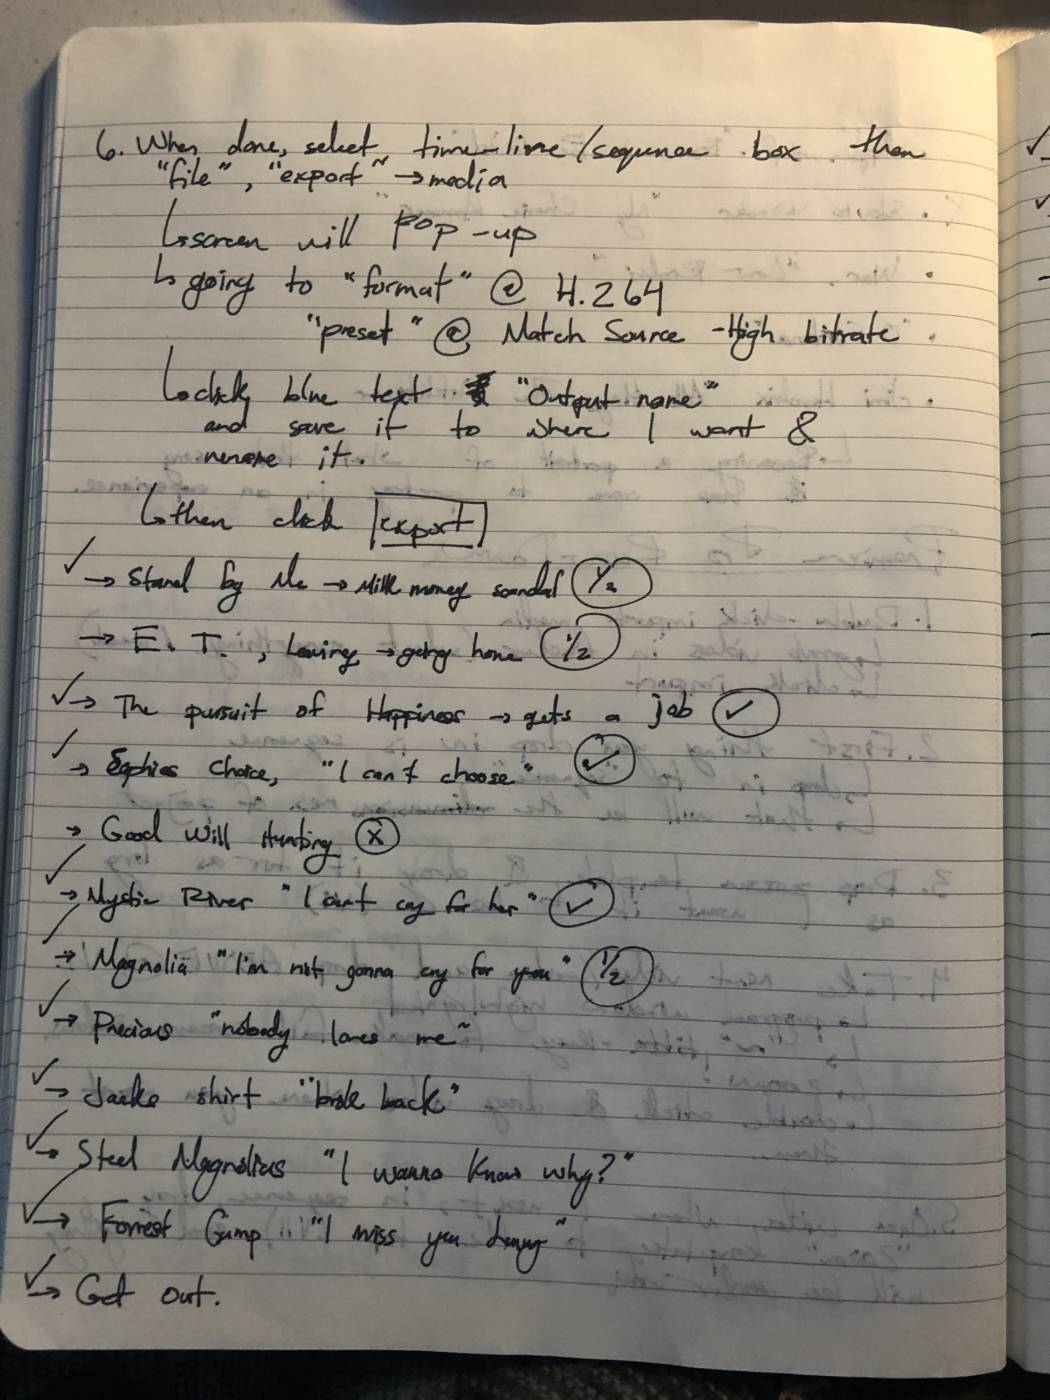 6. When done, select time-line/sequence box then
"file", "export" → media
↳ screen will pop-up
↳ going to "format" @ H.264
"preset" @ Match Source - High bitrate
↳ click blue text "Output name"
and save it to where I want &
rename it.
↳ then click export
✓ → Stand by Me → Milk money scandal 1/2
→ E. T. , Leaving → going home 1/2
✓ → The pursuit of Happiness → gets a job ✓
✓ → Sophies Choice, "I can't choose" ✓
→ Good Will Hunting x
✓ → Mystic River "I can't cry for her" ✓
✓ → Magnolia "I'm not gonna cry for you" 1/2
✓ → Precious "nobody loves me"
✓ → Jacks shirt "brok back"
✓ → Steel Magnolias "I wanna know why?"
✓ → Forrest Gump "I miss you Jenny"
✓ → Get out.